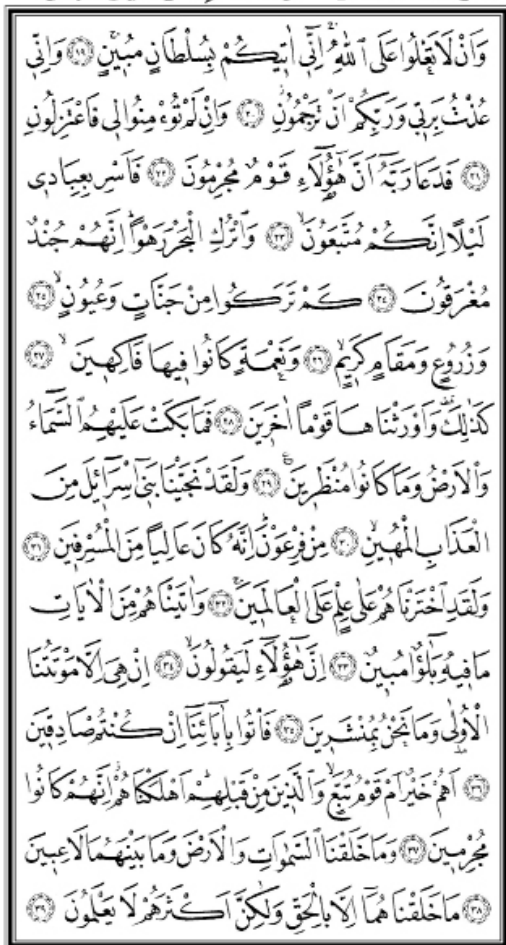 وَاَنْ لَا تَعْلُوا عَلَى اللّٰهِۚ اِنّ۪ٓي اٰت۪يكُمْ بِسُلْطَانٍ مُب۪ينٍۚ ﴿١٩﴾ وَاِنّ۪ي
عُذْتُ بِرَبّ۪ي وَرَبِّكُمْ اَنْ تَرْجُمُونِۘ ﴿٢٠﴾ وَاِنْ لَمْ تُؤْمِنُوا ل۪ي فَاعْتَزِلُونِ
﴿٢١﴾ فَدَعَا رَبَّهُٓ اَنَّ هٰٓؤُ۬لَٓاءِ قَوْمٌ مُجْرِمُونَ ﴿٢٢﴾ فَاَسْرِ بِعِبَاد۪ي
لَيْلًا اِنَّكُمْ مُتَّبَعُونَۙ ﴿٢٣﴾ وَاتْرُكِ الْبَحْرَ رَهْوًاۜ اِنَّهُمْ جُنْدٌ
مُغْرَقُونَ ﴿٢٤﴾ كَمْ تَرَكُوا مِنْ جَنَّاتٍ وَعُيُونٍۙ ﴿٢٥﴾
وَزُرُوعٍ وَمَقَامٍ كَر۪يمٍۙ ﴿٢٦﴾ وَنَعْمَةٍ كَانُوا ف۪يهَا فَاكِه۪ينَۙ ﴿٢٧﴾
كَذٰلِكَ۠ وَاَوْرَثْنَاهَا قَوْمًا اٰخَر۪ينَ ﴿٢٨﴾ فَمَا بَكَتْ عَلَيْهِمُ السَّمَٓاءُ
وَالْاَرْضُ وَمَا كَانُوا مُنْظَر۪ينَ۟ ﴿٢٩﴾ وَلَقَدْ نَجَّيْنَا بَن۪ٓي اِسْرَٓائ۪لَ مِنَ
الْعَذَابِ الْمُه۪ينِۙ ﴿٣٠﴾ مِنْ فِرْعَوْنَۜ اِنَّهُ كَانَ عَالِيًا مِنَ الْمُسْرِف۪ينَ ﴿٣١﴾
وَلَقَدِ اخْتَرْنَاهُمْ عَلٰى عِلْمٍ عَلَى الْعَالَم۪ينَۚ ﴿٣٢﴾ وَاٰتَيْنَاهُمْ مِنَ الْاٰيَاتِ
مَا ف۪يهِ بَلٰٓؤٌ۬ا مُب۪ينٌ ﴿٣٣﴾ اِنَّ هٰٓؤُ۬لَٓاءِ لَيَقُولُونَۙ ﴿٣٤﴾ اِنْ هِيَ اِلَّا مَوْتَتُنَا
الْاُو۫لٰى وَمَا نَحْنُ بِمُنْشَر۪ينَ ﴿٣٥﴾ فَأْتُوا بِاٰبَٓائِنَٓا اِنْ كُنْتُمْ صَادِق۪ينَ
﴿٣٦﴾ اَهُمْ خَيْرٌ اَمْ قَوْمُ تُبَّعٍۙ وَالَّذ۪ينَ مِنْ قَبْلِهِمْۜ اَهْلَكْنَاهُمْۘ اِنَّهُمْ كَانُوا
مُجْرِم۪ينَ ﴿٣٧﴾ وَمَا خَلَقْنَا السَّمٰوَاتِ وَالْاَرْضَ وَمَا بَيْنَهُمَا لَاعِب۪ينَ
﴿٣٨﴾ مَا خَلَقْنَاهُمَٓا اِلَّا بِالْحَقِّ وَلٰكِنَّ اَكْثَرَهُمْ لَا يَعْلَمُونَ ﴿٣٩﴾